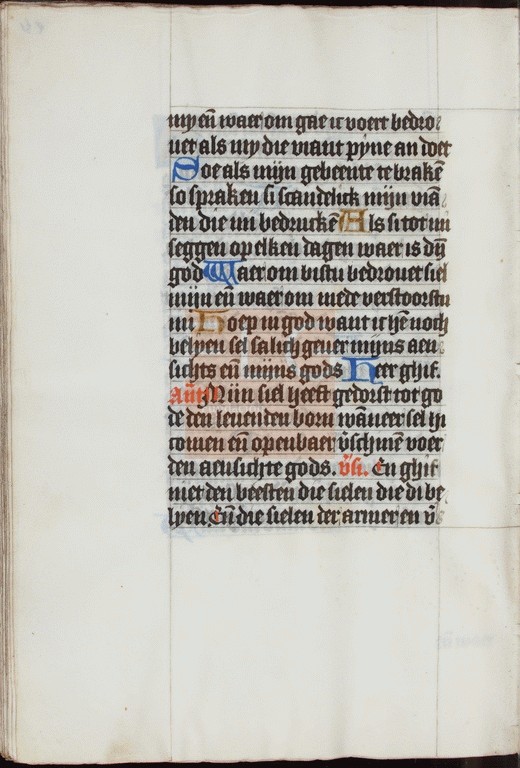 my eñ waer om gae ic voert bedro
uet als my die viant pyne an doet
Soe als mijn gebeente te brakē
so spraken si scandelick mijn viā
den die mi bedruckē Als si tot mi
seggen op elken dagen waer is dij̄
god Waer om bistu bedrouet siel
mijn eñ waer om mede verstoorstu
mi Hoep in god want ic hē noch
belyen sel salich geuer mijns aen
sichts eñ mijns gods Heer ghif
añ Mijn siel heeft gedorst tot go
de den leuenden born wāneer sel ic
comen eñ openbaer v̄schinē voer
den aensichte gods. v̄si. En ghif
niet den beesten die sielen die di be
lyen. Eñ die sielen der armer en v̄